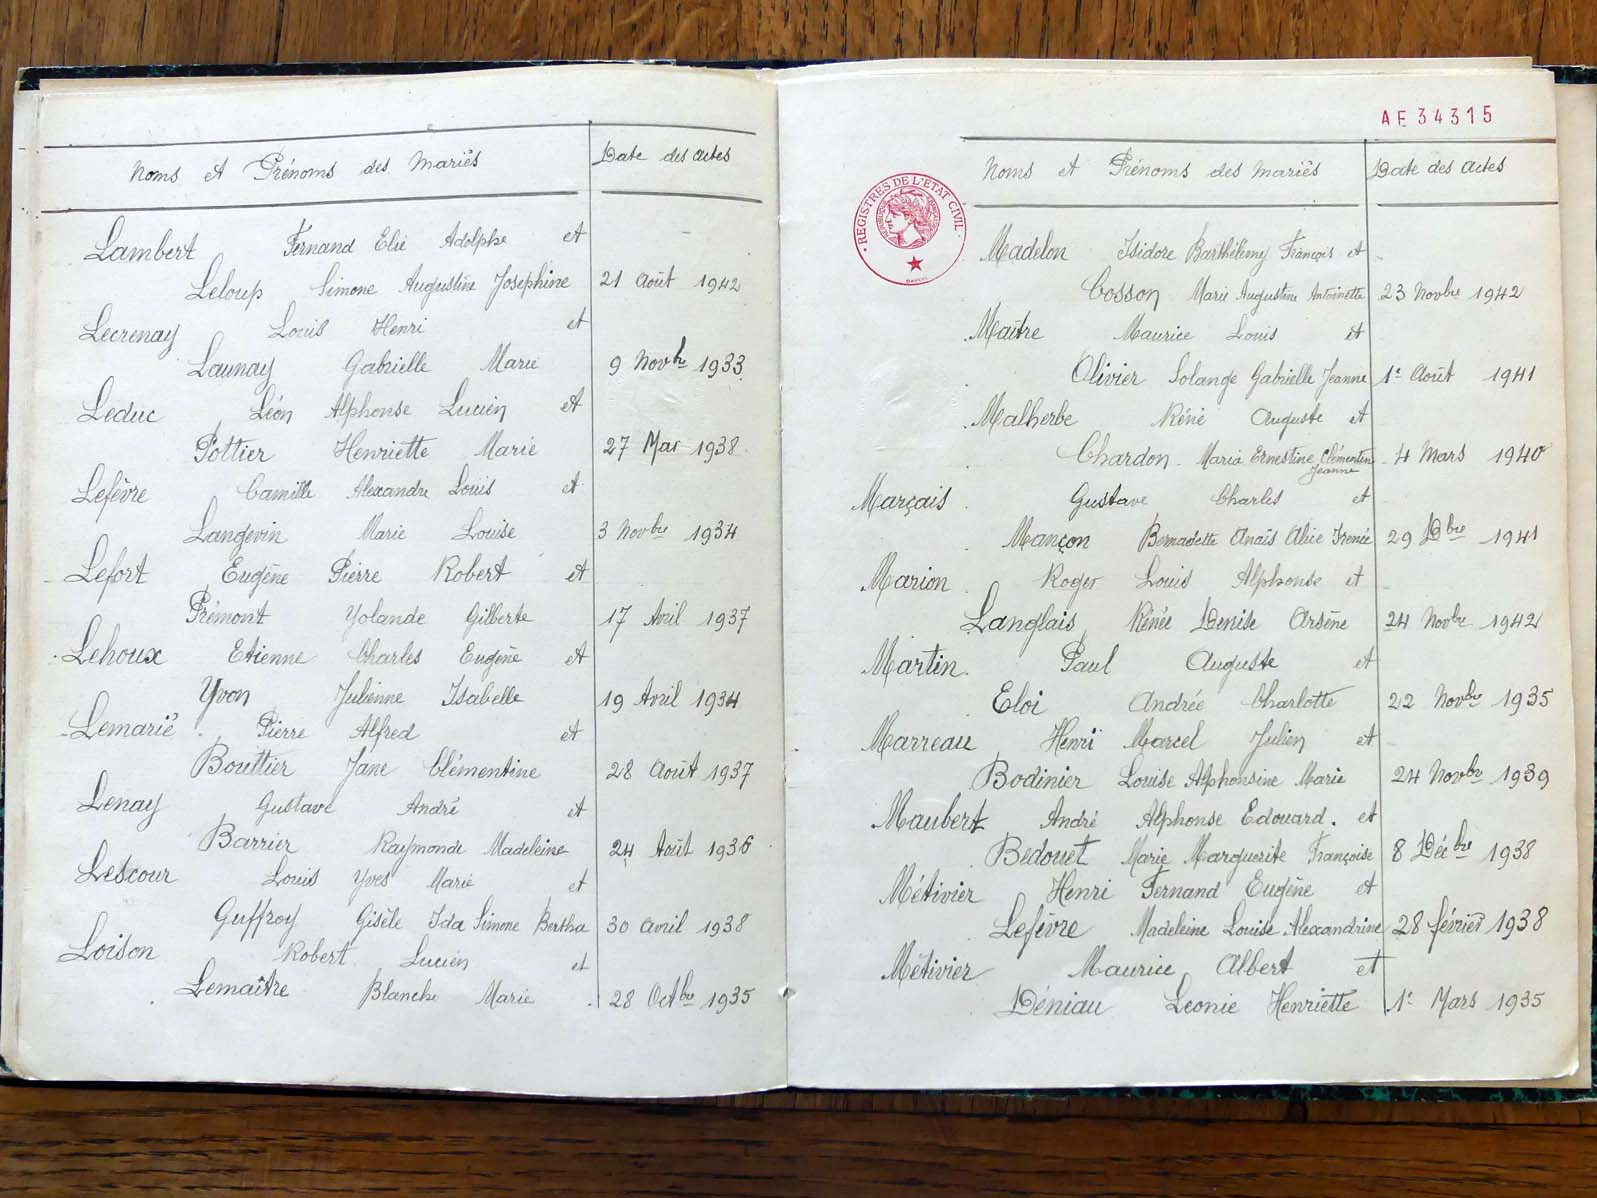 Noms et Prénoms des mariés Date des actes
Lambert Fernand Elie Adolphe et
Leloup Simone Augustine Joséphine 21 Août 1942
Lecrenay Louis Henri et
Launay Gabrielle Marie 9 Novbre 1933
Leduc Léon Alphonse Lucien et
Pottier Henriette Marie 27 Mai 1938
Lefèvre Camille Alexandre Louis et
Langevin Marie Louise 3 Novbre 1934
Lefort Eugène Pierre Robert et
Prémont Yolande Gilberte 17 Avril 1937
Lehoux Etienne Charles Eugène et
Yvon Julienne Isabelle 19 Avril 1934
Lemarié Pierre Alfred et
Bouttier Jane Clémentine 28 Août 1937
Lenay Gustave André et
Barrier Raymonde Madeleine 24 Août 1936
Lescour Louis Yves Marie et
Guffroy Gisèle Ida Simone Bertha 30 avril 1938
Loison Robert Lucien et
Lemaître Blanche Marie 28 Octbre 1935
AE 34315
Noms et Prénoms des mariés Date des actes
REGISTRES DE L'ETAT CIVIL
Madelon Isidore Barthélemy François et
Cosson Marie Augustine Antoinette 23 Novbre 1942
Maître Maurice Louis et
Olivier Solange Gabrielle Jeanne 1e Août 1941
Malherbe Réné Auguste et
Chardon Maria Ernestine Clémentine 4 Mars 1940
Jeanne
Marçais Gustave Charles et
Mançon Bernadette Anaïs Alice Irenée 29 Dbre 1941
Marion Roger Louis Alphonse et
Langlais Rénée Denise Arsène 24 Novbre 1942
Martin Paul Auguste et
Eloi Andrée Charlotte 22 Novbre 1935
Marreau Henri Marcel Julien et
Bodinier Louise Alphonsine Marie 24 Novbre 1939
Maubert André Alphonse Edouard. et
Bedouet Marie Marguerite Françoise 8 Décbre 1938
Métivier Henri Fernand Eugène et
Lefèvre Madeleine Louise Alexandrine 28 février 1938
Métivier Maurice Albert et
Déniau Leonie Henriette 1e Mars 1935